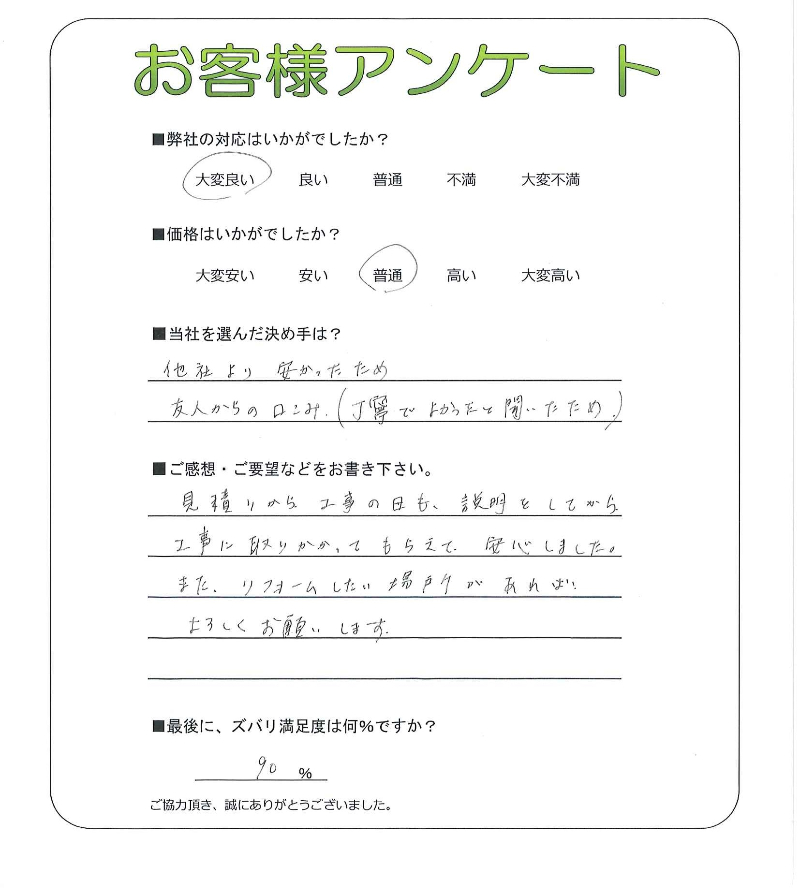 お客様アンケート
■弊社の対応はいかがでしたか？
大変良い 良い 普通 不満 大変不満
■価格はいかがでしたか？
大変安い 安い 普通 高い 大変高い
■当社を選んだ決め手は？
他社より 安かったため
友人からの口こみ.(丁寧でよかったと聞いたため.)
■ご感想・ご要望などをお書き下さい。
見積りから 工事の日も、説明をしてから
工事に取りかかって もらえて、安心しました。
また、リフォームしたい場所があれば
よろしくお願いします.
■最後に、ズバリ満足度は何％ですか？
90 ％
ご協力頂き、誠にありがとうございました。